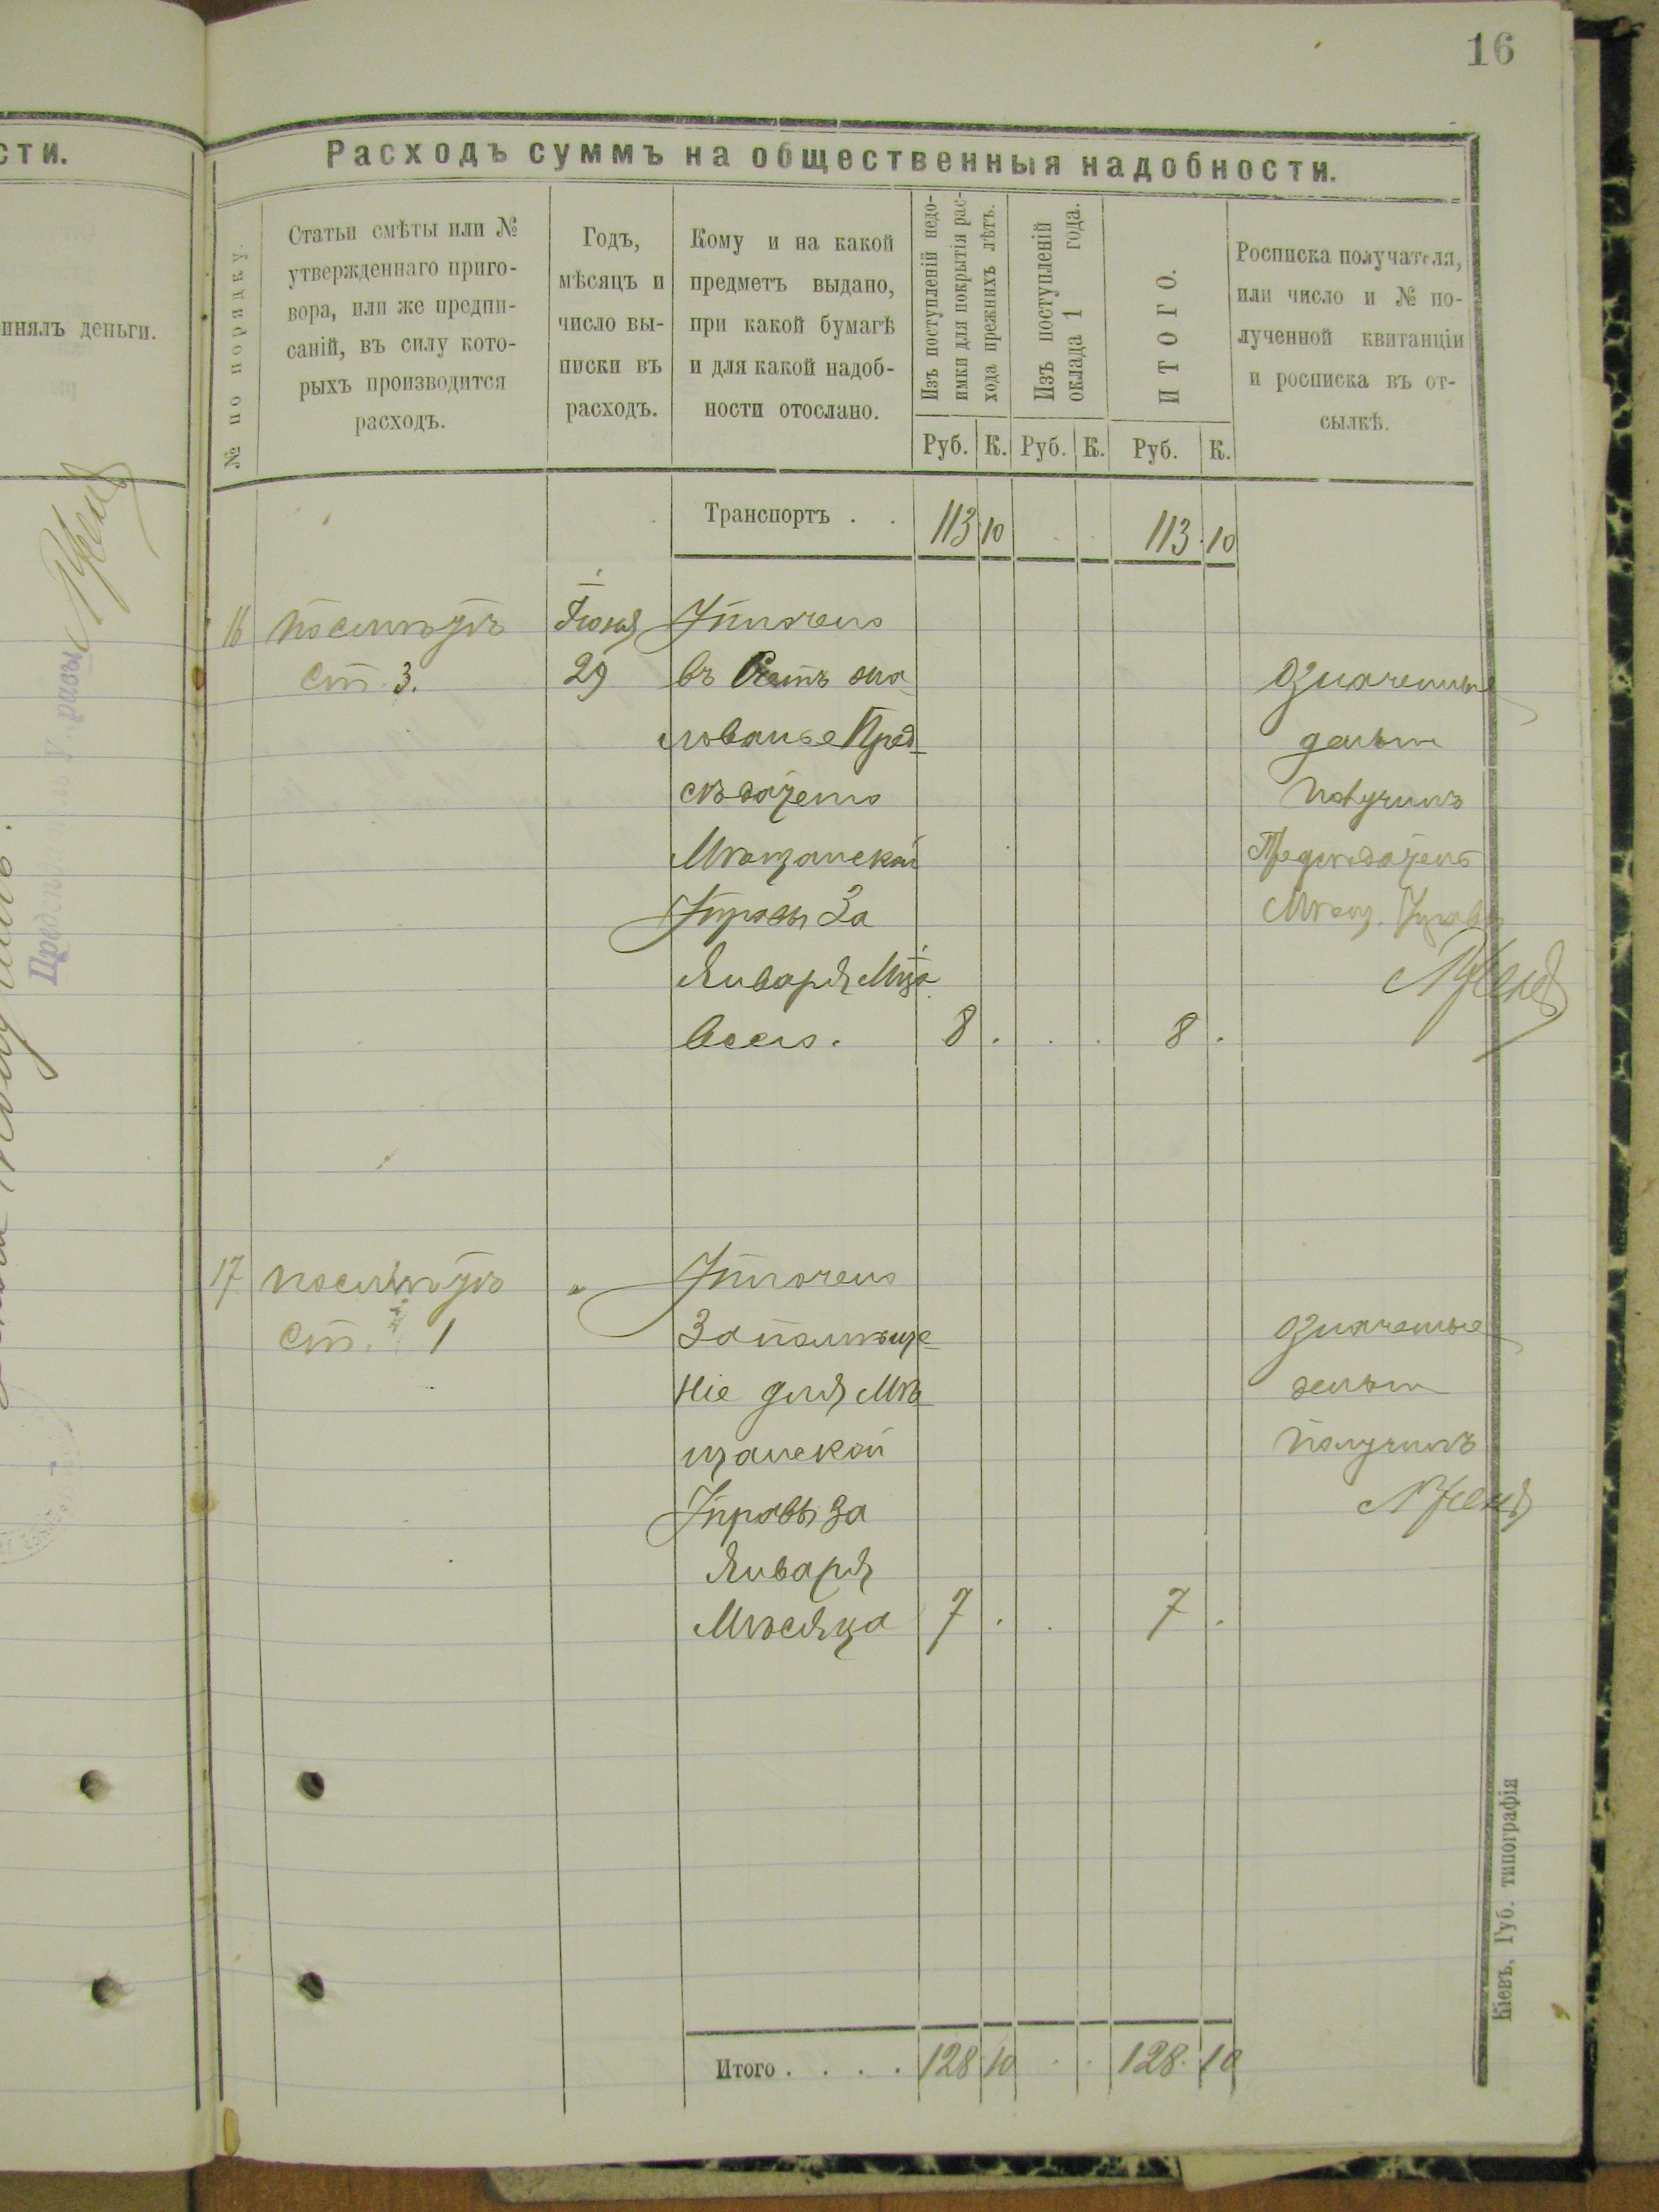 16
сти.
инялъ деньги.
Расходъ суммъ на общественныя надобности.
№ по порядку.
Статьи смѣты или №
утвержденнаго приго-
вора, или же предпи-
саній, въ силу кото-
рыхъ производится
расходъ.
Годъ,
мѣсяцъ и
число вы-
писки въ
расходъ.
Кому и на какой
предметъ выдано,
при какой бумагѣ
и для какой надоб-
ности отослано.
Изъ поступленій недо-
имки для покрытія рас-
хода прежнихъ лѣтъ.
Изъ поступленій
оклада 1 года.
ИТОГО.
Росписка получателя,
или число и № по-
лученной квитанціи
и росписка въ от-
сылкѣ.
Руб. К. Руб. К. Руб. К.
Транспортъ . . 113 10 113 10
16 Іюня Уплочено
Ст. 3. 29 въ Счетъ жа-
лованье Пред-
сѣдателю
Мѣщанской
Управы За
Января Мца
всего. 8 . . . 8 .
Означенные
деньги
Получилъ
Предсѣдатель
Мѣщ. Управы
17 " Уплочено
Ст. 1 За помѣще-
ніе для Мѣ-
щанской
Управы за
Января
Мѣсяца 7 . . 7 .
Означенные
деньги
Получилъ
Итого . . . . 128 10 . . 128 10
Кіевъ, Губ. типографія